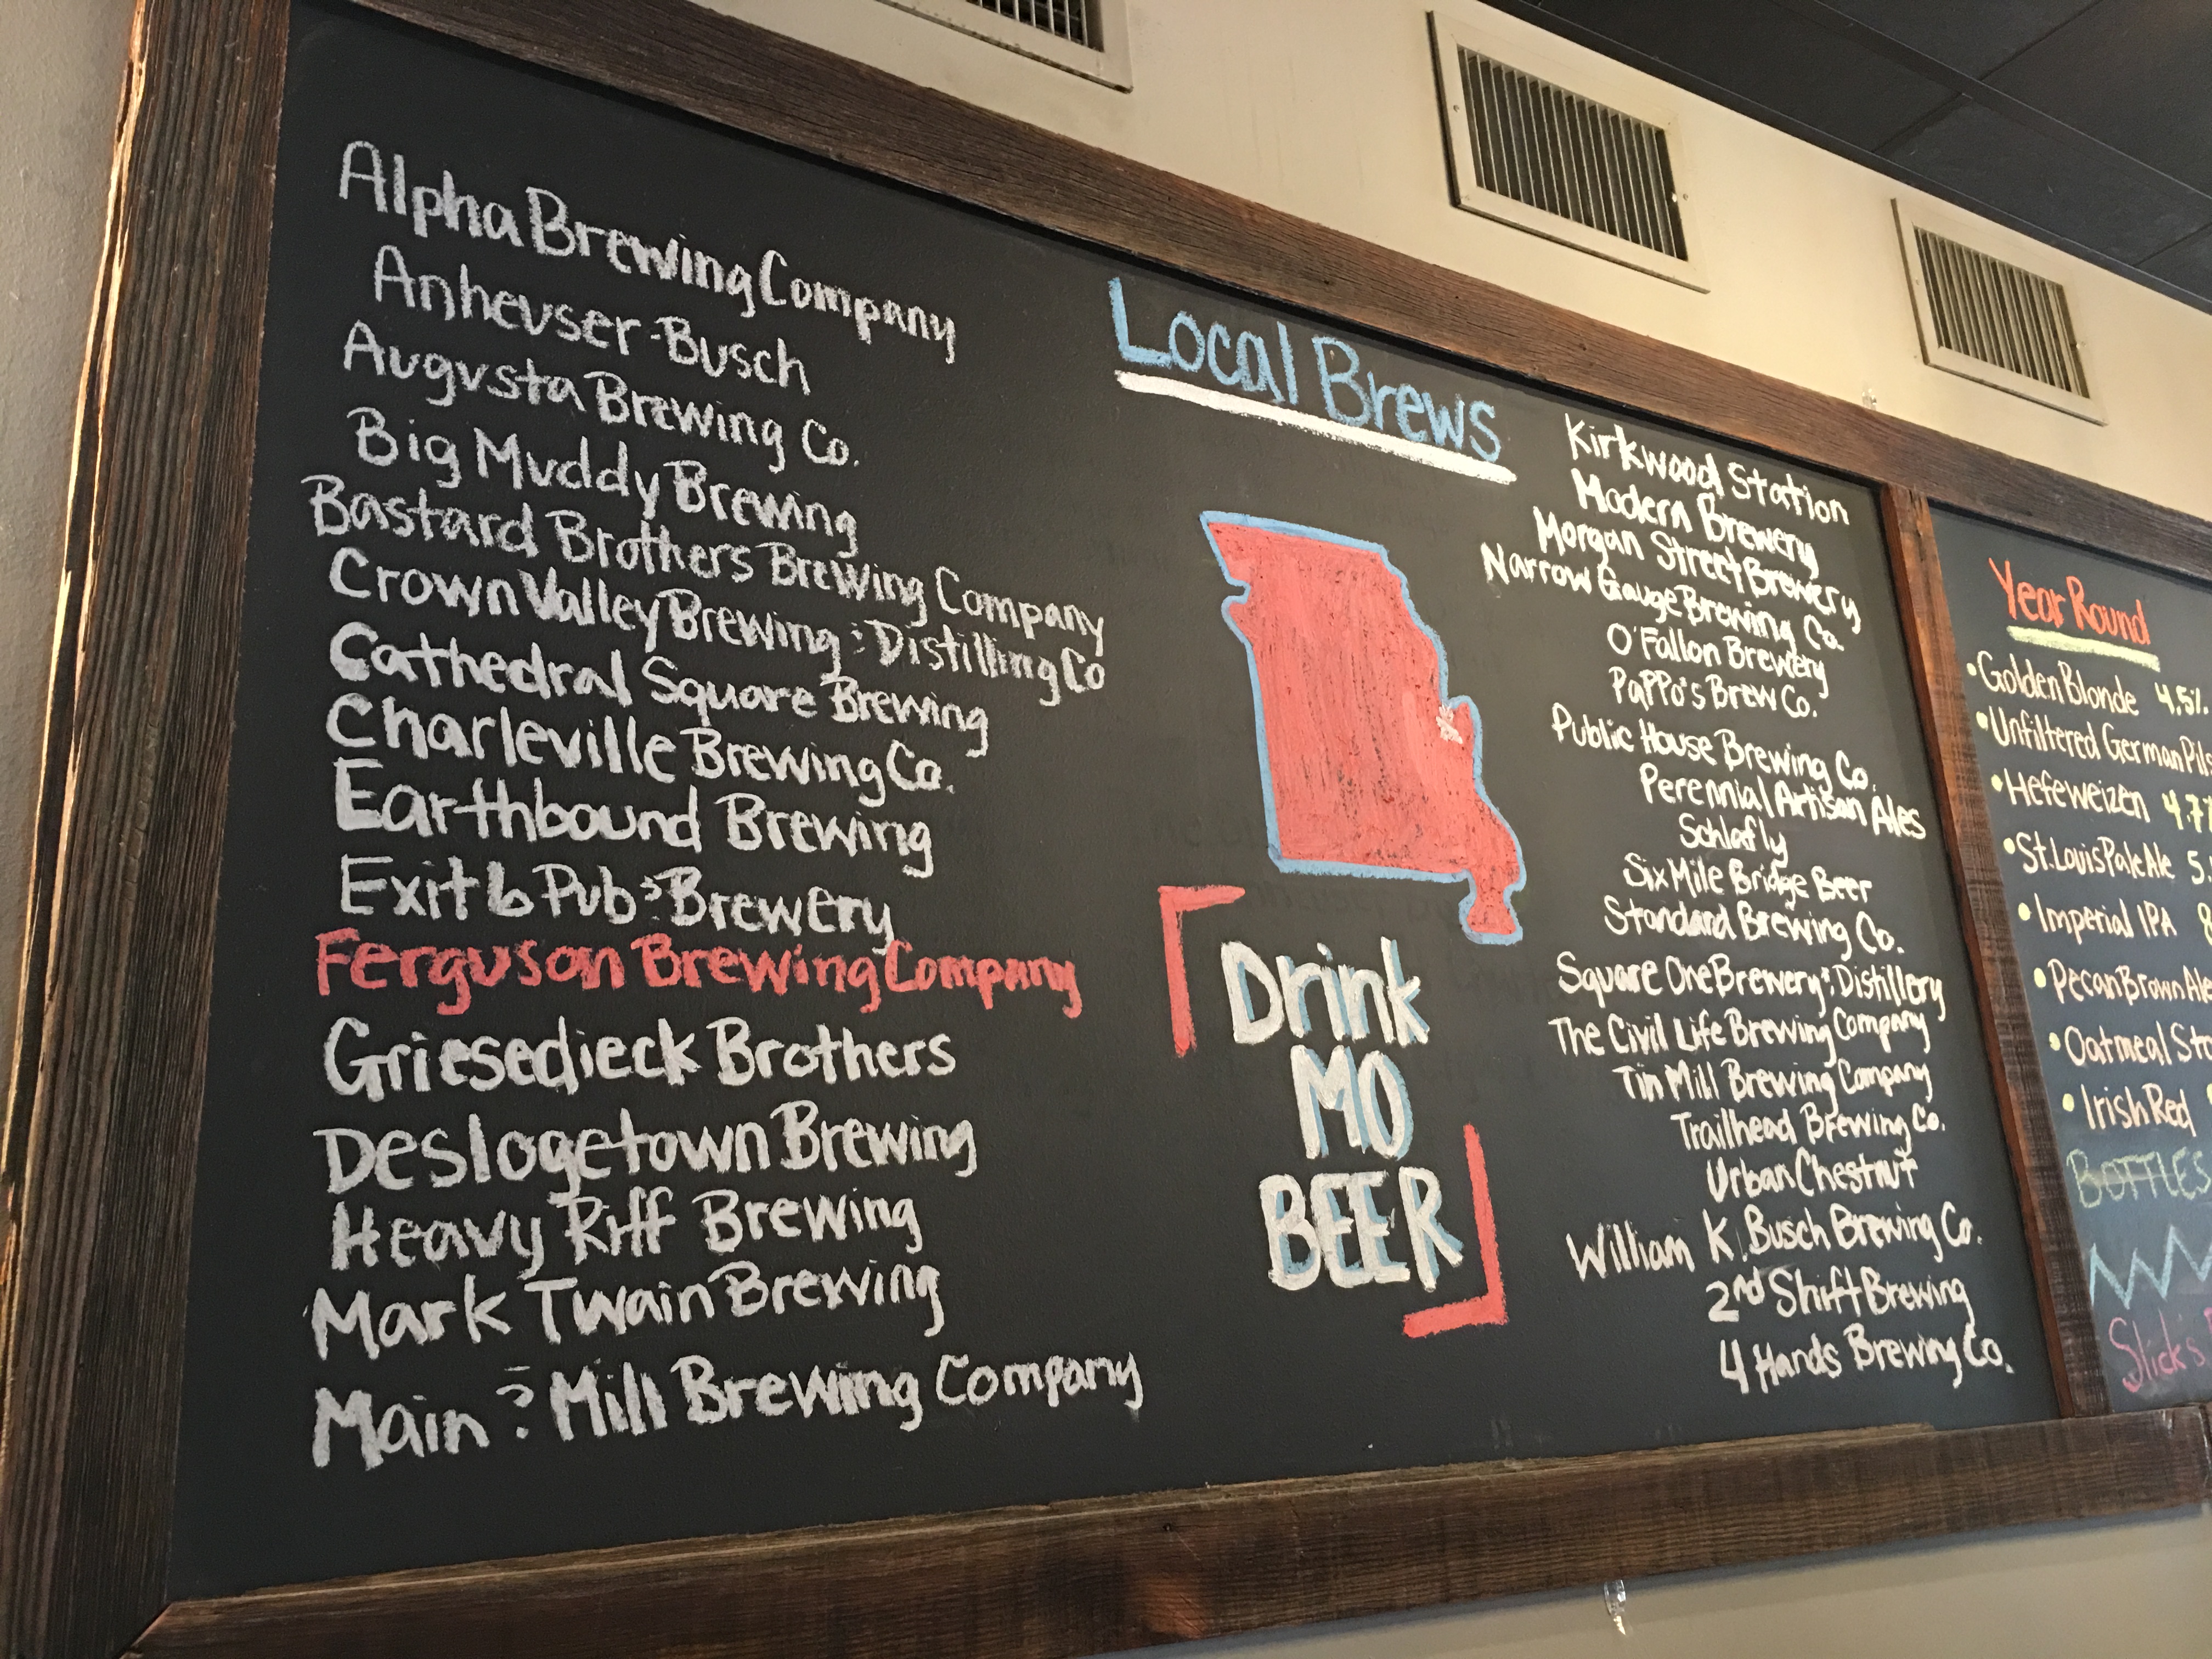 Alpha Brewing Company
Anheuser-Busch
Augusta Brewing Co.
Big Muddy Brewing
Bastard Brothers Brewing Company
Crown Valley Brewing & Distilling Co
Cathedral Square Brewing
Charleville Brewing Co.
Earthbound Brewing
Exit 6 Pub & Brewery
Ferguson Brewing Company
Griesedieck Brothers
Deslogetown Brewing
Heavy Riff Brewing
Mark Twain Brewing
Main & Mill Brewing Company
Local Brews
Drink
MO
BEER
Kirkwood Station
Modern Brewery
Morgan Street Brewery
Narrow Gauge Brewing Co.
O'Fallon Brewery
PaPPo's Brew Co.
Public House Brewing Co.
Perennial Artisan Ales
Schlafly
Six Mile Bridge Beer
Standard Brewing Co.
Square One Brewery & Distillery
The Civil Life Brewing Company
Tin Mill Brewing Company
Trailhead Brewing Co.
Urban Chestnut
William K. Busch Brewing Co.
2nd Shift Brewing
4 Hands Brewing Co.
Year Round
•Golden Blonde 4.5%
•Unfiltered German Pils
•Hefeweizen 4.7%
•St. Louis Pale Ale 5.
•Imperial IPA
•Pecan Brown Ale
•Oatmeal Sto
•Irish Red
BOTTLES
Slick's